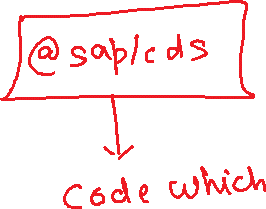 @sap/cds
Code which